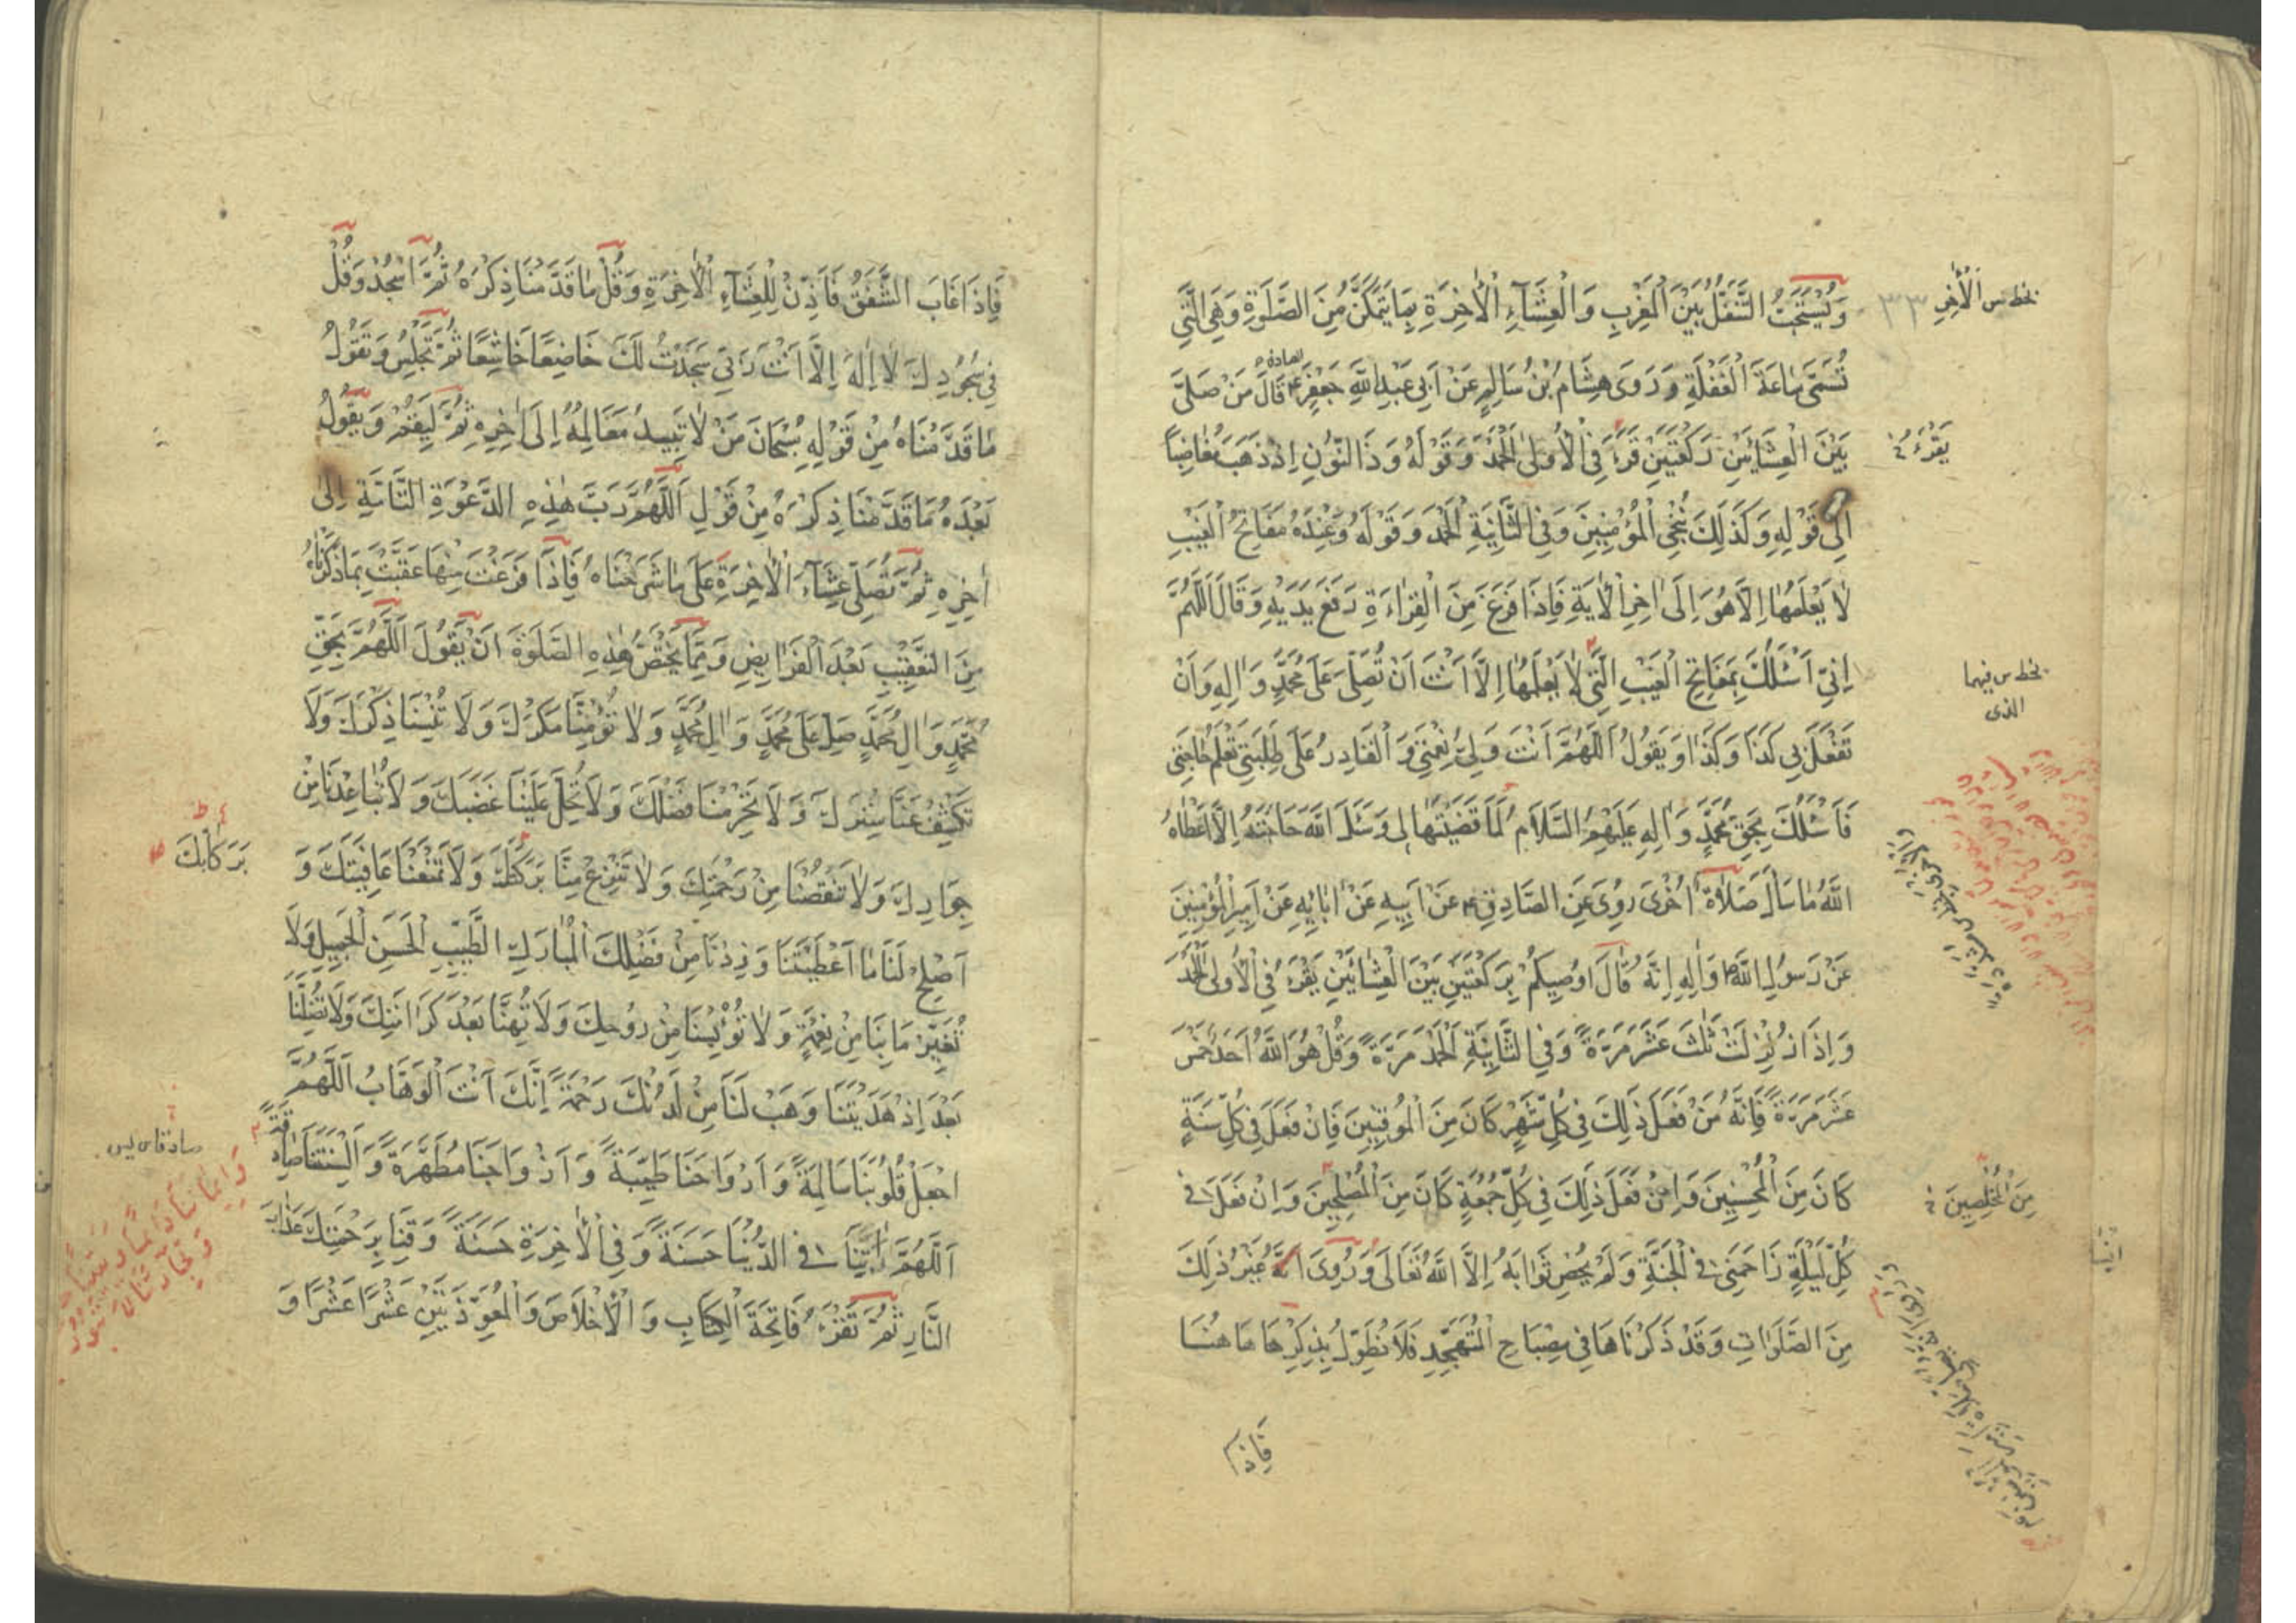 وَيُسْتَحَبُّ التَّنَفُّلُ بَيْنَ الْمَغْرِبِ وَالْعِشَآءِ الْاٰخِرَةِ بِمَا يَتَمَكَّنُ مِنَ الصَّلٰوةِ وَهِيَ الَّتِي
تُسَمّٰى سَاعَةَ الْغَفْلَةِ وَرَوَى هِشَامُ بْنُ سَالِمٍ عَنْ اَبِي عَبْدِ اللّٰهِ جَعْفَرٍ ع قَالَ مَنْ صَلَّى
بَيْنَ الْعِشَائَيْنِ رَكْعَتَيْنِ قَرَءَ فِي الْاُولٰى الْحَمْدَ وَقَوْلَهُ وَذَا النُّوْنِ اِذْ ذَهَبَ مُغَاضِبًا
اِلٰى قَوْلِهِ وَكَذٰلِكَ نُنْجِي الْمُؤْمِنِينَ وَفِي الثَّانِيَةِ الْحَمْدَ وَقَوْلَهُ وَعِنْدَهُ مَفَاتِحُ الْغَيْبِ
لَا يَعْلَمُهَا اِلَّا هُوَ اِلَى اٰخِرِ الْاٰيَةِ فَاِذَا فَرَغَ مِنَ الْقِرَاءَةِ رَفَعَ يَدَيْهِ وَقَالَ اَللّٰهُمَّ
اِنِّي اَسْئَلُكَ بِمَفَاتِحِ الْغَيْبِ الَّتِي لَا يَعْلَمُهَا اِلَّا اَنْتَ اَنْ تُصَلِّيَ عَلَى مُحَمَّدٍ وَاٰلِهِ وَاَنْ
تَفْعَلَ بِي كَذَا وَكَذَا وَيَقُولُ اَللّٰهُمَّ اَنْتَ وَلِيُّ نِعْمَتِي وَالْقَادِرُ عَلَى طَلِبَتِي تَعْلَمُ حَاجَتِي
فَاَسْئَلُكَ بِحَقِّ مُحَمَّدٍ وَاٰلِهِ عَلَيْهِمُ السَّلَامُ لَمَّا قَضَيْتَهَا لِي وَسَئَلَ اللّٰهَ حَاجَتَهُ اِلَّا اَعْطَاهُ
اللّٰهُ مَا سَأَلَ صَلَاةٌ اُخْرَى رُوِيَ عَنِ الصَّادِقِ ع عَنْ اَبِيهِ عَنْ اٰبَائِهِ عَنْ اَمِيرِ الْمُؤْمِنِينَ
عَنْ رَسُولِ اللّٰهِ ص وَاٰلِهِ اِنَّهُ قَالَ اُوصِيكُمْ بِرَكْعَتَيْنِ بَيْنَ الْعِشَائَيْنِ يَقْرَءُ فِي الْاُولٰى الْحَمْدَ
وَاِذَا زُلْزِلَتْ ثَلٰثَ عَشَرَ مَرَّةً وَفِي الثَّانِيَةِ الْحَمْدَ مَرَّةً وَقُلْ هُوَ اللّٰهُ اَحَدٌ خَمْسَ
عَشَرَ مَرَّةً فَاِنَّهُ مَنْ فَعَلَ ذٰلِكَ فِي كُلِّ شَهْرٍ كَانَ مِنَ الْمُوقِنِينَ فَاِنْ فَعَلَ فِي كُلِّ سَنَةٍ
كَانَ مِنَ الْمُحْسِنِينَ وَاِنْ فَعَلَ ذٰلِكَ فِي كُلِّ جُمُعَةٍ كَانَ مِنَ الْمُصْلِحِينَ وَاِنْ فَعَلَ فِي
كُلِّ لَيْلَةٍ زَاحَمَنِي فِي الْجَنَّةِ وَلَمْ يُحْصِ ثَوَابَهُ اِلَّا اللّٰهُ تَعَالَى وَرُوِيَ اَنَّهُ غَيْرُ ذٰلِكَ
مِنَ الصَّلَوَاتِ وَقَدْ ذَكَرْنَاهَا فِي مِصْبَاحِ الْمُتَهَجِّدِ فَلَا نُطَوِّلُ بِذِكْرِهَا هَاهُنَا
فَاِذَا
بخط س الْاٰخِرِ
يَقْرَءُ خ
بخط س فيهما
الذى
مِنَ الْمُخْلِصِينَ خ
فَاِذَا غَابَ الشَّفَقُ فَاَذِّنْ لِلْعِشَآءِ الْاٰخِرَةِ وَقُلْ مَا قَدَّمْنَا ذِكْرَهُ ثُمَّ اسْجُدْ وَقُلْ
فِي سُجُودِكَ لَا اِلٰهَ اِلَّا اَنْتَ رَبِّي سَجَدْتُ لَكَ خَاضِعًا خَاشِعًا ثُمَّ تَجْلِسُ وَتَقُولُ
مَا قَدَّمْنَاهُ مِنْ قَوْلِهِ سُبْحَانَ مَنْ لَا تَبِيدُ مَعَالِمُهُ اِلَى اٰخِرِهِ ثُمَّ لِيَقُمْ وَيَقُولُ
بَعْدَهُ مَا قَدَّمْنَا ذِكْرَهُ مِنْ قَوْلِ اَللّٰهُمَّ رَبَّ هٰذِهِ الدَّعْوَةِ التَّامَّةِ اِلَى
اٰخِرِهِ ثُمَّ تُصَلِّي عِشَآءَ الْاٰخِرَةِ عَلَى مَا شَرَحْنَاهُ فَاِذَا فَرَغْتَ مِنْهَا عَقَّبْتَ بِمَا ذَكَرْنَاهُ
مِنَ التَّعْقِيْبِ بَعْدَ الْفَرَايِضِ وَمِمَّا يَخْتَصُّ هٰذِهِ الصَّلٰوةَ اَنْ يَقُولَ اَللّٰهُمَّ بِحَقِّ
مُحَمَّدٍ وَاٰلِ مُحَمَّدٍ صَلِّ عَلَى مُحَمَّدٍ وَاٰلِ مُحَمَّدٍ وَلَا تُؤْمِنَّا مَكْرَكَ وَلَا تُنْسِنَا ذِكْرَكَ وَلَا
تَكْشِفْ عَنَّا سِتْرَكَ وَلَا تَحْرِمْنَا فَضْلَكَ وَلَا تُحِلَّ عَلَيْنَا غَضَبَكَ وَلَا تُبَاعِدْنَا مِنْ
جِوَارِكَ وَلَا تَنْقُصْنَا مِنْ رَحْمَتِكَ وَلَا تَنْزِعْ مِنَّا بَرَكَتَكَ وَلَا تَمْنَعْنَا عَافِيَتَكَ وَ
اَصْلِحْ لَنَا مَا اَعْطَيْتَنَا وَزِدْنَا مِنْ فَضْلِكَ الْمُبَارَكِ الطَّيِّبِ الْحَسَنِ الْجَمِيلِ وَلَا
تُغَيِّرْ مَا بِنَا مِنْ نِعْمَةٍ وَلَا تُؤْيِسْنَا مِنْ رَوْحِكَ وَلَا تُهِنَّا بَعْدَ كَرَامَتِكَ وَلَا تُضِلَّنَا
بَعْدَ اِذْ هَدَيْتَنَا وَهَبْ لَنَا مِنْ لَدُنْكَ رَحْمَةً اِنَّكَ اَنْتَ الْوَهَّابُ اَللّٰهُمَّ
اجْعَلْ قُلُوبَنَا سَالِمَةً وَاَرْوَاحَنَا طَيِّبَةً وَاَزْوَاجَنَا مُطَهَّرَةً وَاَلْسِنَتَنَا صَادِقَةً
اَللّٰهُمَّ اٰتِنَا فِي الدُّنْيَا حَسَنَةً وَفِي الْاٰخِرَةِ حَسَنَةً وَقِنَا بِرَحْمَتِكَ عَذَابَ
النَّارِ ثُمَّ تَقْرَءُ فَاتِحَةَ الْكِتَابِ وَالْاِخْلَاصَ وَالْمُعَوِّذَتَيْنِ عَشْرًا عَشْرًا وَ
بَرَكَاتِكَ
وَاِيمَانَنَا دَائِمًا